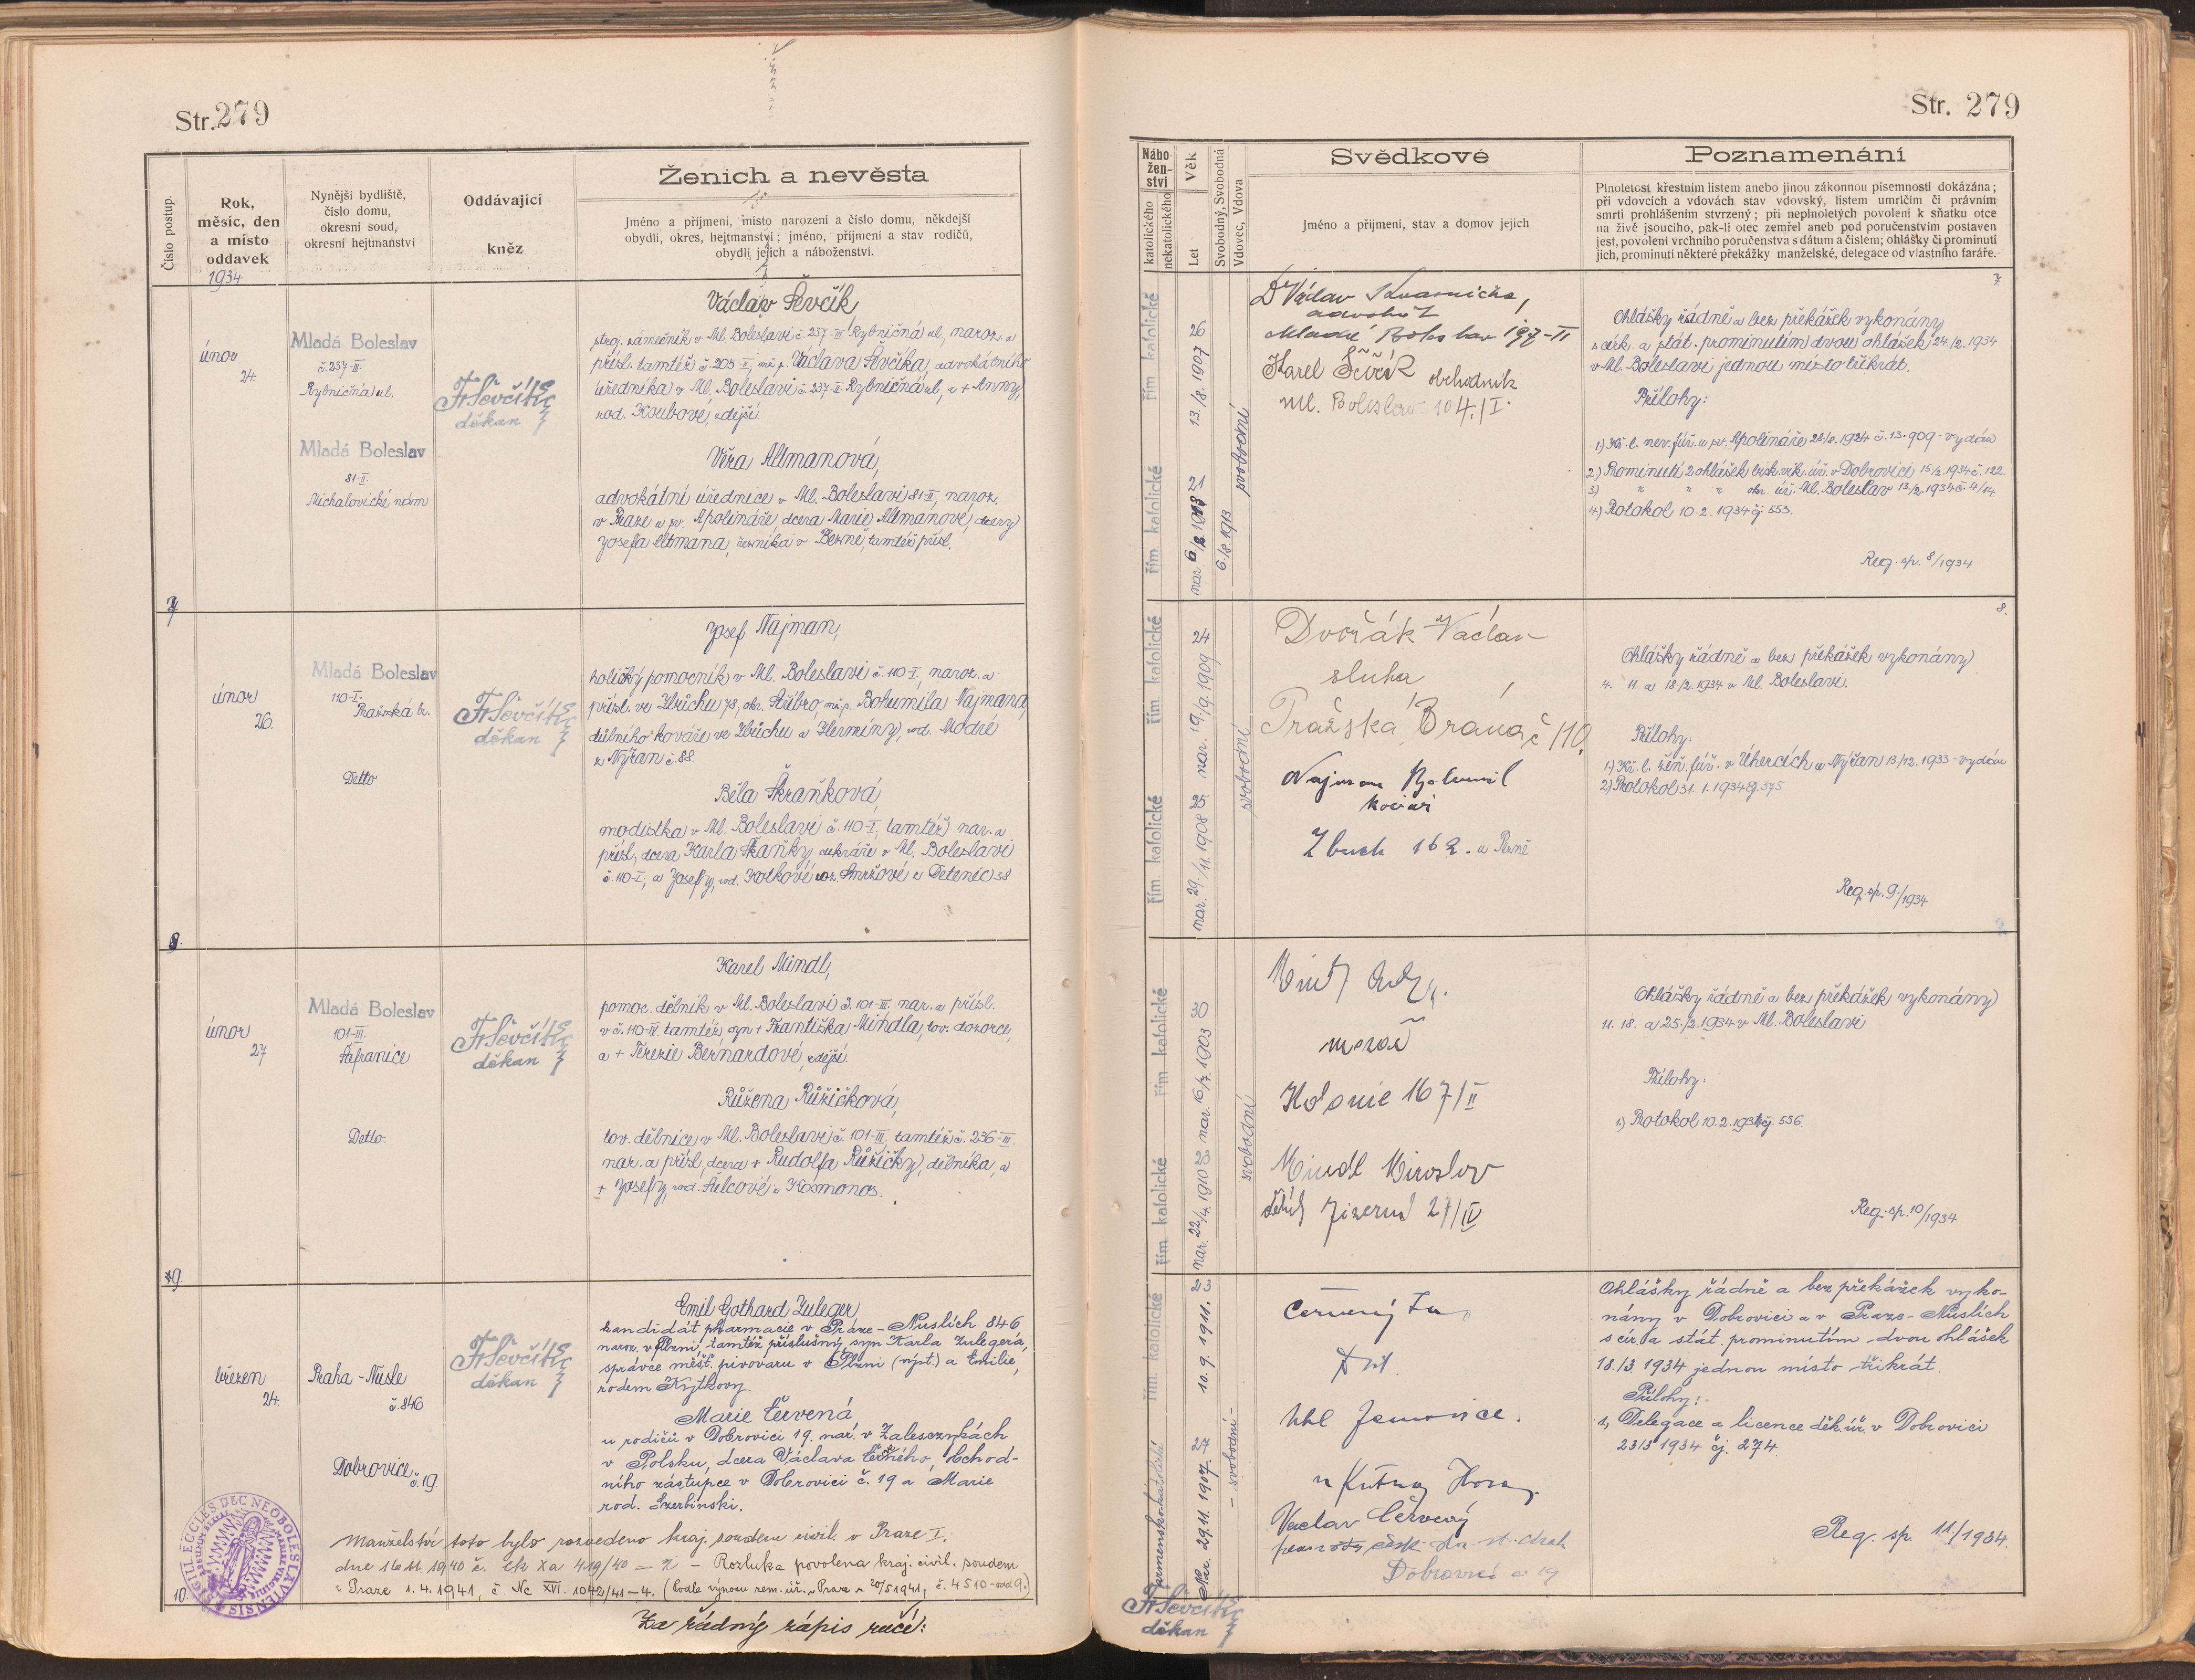 Str. 279
Číslo postup.
Rok,
měsíc, den
a místo
oddavek
1934
Nynější bydliště,
číslo domu,
okresní soud,
okresní hejtmanství
Oddávající
kněz
Ženich a nevěsta
Jméno a příjmení, místo narození a číslo domu, někdejší
obydlí, okres, hejtmanství; jméno, příjmení a stav rodičů,
obydlí jejich a náboženství.
únor
24.
Mladá Boleslav
č. 237-III.
Rybničná ul.
Mladá Boleslav
81-II.
Michalovické nám
Fr Ševčík
děkan
Václav Ševčík,
stroj. zámečník v Ml. Boleslavi č. 237-III Rybničná ul., naroz. a
přísl. tamtéž č 203-I, m. p. Václava Ševčíka, advokátního
úředníka v Ml. Boleslavi č. 237-II Rybničná ul., a + Anny,
rod. Koubové, zdejší.
Věra Altmanová,
advokátní úřednice v Ml. Boleslavi 81-II, naroz.
v Praze u sv. Apolináře, dcera Marie Altmanové, dcery
Josefa Altmana, řezníka v Bezně, tamtéž přísl.
7
únor
26.
Mladá Boleslav
110-I.
Pražská br.
Detto
Fr Ševčík
děkan
Josef Najman,
holičský pomocník v Ml. Boleslavi č. 110-I, naroz. a
přísl. ve Zbůchu 78, okr. Stříbro, m. p. Bohumila Najmana,
důlního kováře ve Zbůchu a Hermíny, rod. Modré
z Nýřan č. 88.
Běla Škraňková,
modistka v Ml. Boleslavi č. 110-I, tamtéž nar. a
přísl., dcera Karla Škraňky, cukráře v Ml. Boleslavi
č. 110-I, a Josefy, rod. Kolkové roz. Smržové z Dětenic 58
8.
únor
27
Mladá Boleslav
101-III.
Šafranice
Detto.
Fr Ševčík
děkan
Karel Mindl,
pomoc. dělník v Ml. Boleslavi č. 101-III. nar. a přísl.
v č. 110-IV. tamtéž, syn + Františka Mindla, tov. dozorce,
a + Terezie Bernardové, zdejší.
Růžena Růžičková,
tov. dělnice v Ml. Boleslavi č. 101-III, tamtéž č. 236-III.
nar. a přísl., dcera + Rudolfa Růžičky, dělníka, a
+ Josefy, rod. Šulcové z Kosmonos.
9.
březen
24.
Praha - Nusle
č. 846
Dobrovice
č. 19.
Fr Ševčík
děkan
Emil Gothard Zuleger
kandidát pharmacie v Praze - Nuslích 846
naroz. v Plzni, tamtéž příslušný, syn Karla Zulegera,
správce měšť. pivovaru v Plzni (výst.) a Emilie,
rodem Kytkovy.
Marie Červená
u rodičů v Dobrovici 19. nar. v Zalesczykách
v Polsku, dcera Václava Červeného, obchod-
ního zástupce v Dobrovici č. 19 a Marie
rod. Szerbínski.
Manželství toto bylo rozvedeno kraj. soudem civil. v Praze I.
dne 16 11. 1940 č. Ck Xa 419/40 — 2 — Rozluka povolena kraj. civil. soudem
v Praze 1. 4. 1941, č. Nc XVI. 1042/41 — 4. (Podle výnosu zem. úř. v Praze z 20/5 1941, č. 4510 - odd 9.)
10.
Za řádný zápis ručí:
Str. 279
Nábo-
žen-
ství
katolického
nekatolického
Věk
Let
Svobodný, Svobodná
Vdovec, Vdova
Svědkové
Jméno a příjmení, stav a domov jejich
Poznamenání
Plnoletost křestním listem anebo jinou zákonnou písemností dokázána;
při vdovcích a vdovách stav vdovský, listem umrlčím či právním
smrti prohlášením stvrzený; při neplnoletých povolení k sňatku otce
na živě jsoucího, pak-li otec zemřel aneb pod poručenstvím postaven
jest, povolení vrchního poručenstva s dátum a číslem; ohlášky či prominutí
jich, prominutí některé překážky manželské, delegace od vlastního faráře.
řím katolické
řím. katolické
13./8. 1907 26
nar 6/8 1913 21
6./8. 1913
svobodní
Dr Václav
advokát
Mladá Boleslav 197-II
Karel Ševčík obchodník
Ml. Boleslav 104./I.
7
Ohlášky řádně a bez překážek vykonány
s círk. a stát. prominutím dvou ohlášek 24./2. 1934
v Ml. Boleslavi jednou místo třikrát.
Přílohy:
1) Kř. l. nev. fúř. u sv. Apolináře 28/2. 1924 č. 13.909 - vydán
2) Prominutí 2 ohlášek bisk. vik. úř. v Dobrovici 15/2. 1934 č. 122.
3) " " " okr. úř. Ml. Boleslav 13/2. 1934 č. 4/14.
4) Protokol 10. 2. 1934 čj 553.
Reg. sp. 8/1934
řím katolické
řím. katolické
nar. 19./9. 1909 24
nar. 29./11. 1908 25
svobodní
Dvořák Václav
sluha
Pražská Brana č 110.
Najman Bohumil
kovář
Zbuch 162. u Plzně
8.
Ohlášky řádně a bez překážek vykonány
4. 11. a 18/2. 1934 v Ml. Boleslavi.
Přílohy.
1) Kř. l. žen. fúř. v Úhercích u Nýřan 13/12. 1933 - vydán
2) Protokol 31. 1. 1934 čj. 375
Reg. sp. 9./1934
řím katolické
řím katolické
nar. 16/7. 1903 30
nar. 22/4. 1910 23
svobodní
Kolonie 167/II
Mindl Miroslav
Jizerná 27/IV
Ohlášky řádně a bez překážek vykonány
11. 18. a 25./2. 1934 v Ml. Boleslavi
Přílohy:
1.) Protokol 10. 2. 1934 čj. 556.
Reg. sp. 10/1934
řím. katolické
armenskokatolické
10. 9. 1911. 23
Nar. 29. 11. 1907. 27
- svobodní -
Červený
u Kutné Hory.
Václav Červený
Dobrovici č 19
Ohlášky řádně a bez překážek vyko-
nány v Dobrovici a v Praze - Nuslích
s cír. a stát. prominutím dvou ohlášek
18./3. 1934 jednou místo třikrát.
Přílohy:
1, Delegace a licence děk. úř. v Dobrovici
23/3 1934 čj. 274.
Reg. sp. 11/1934.
Fr Ševčík
děkan